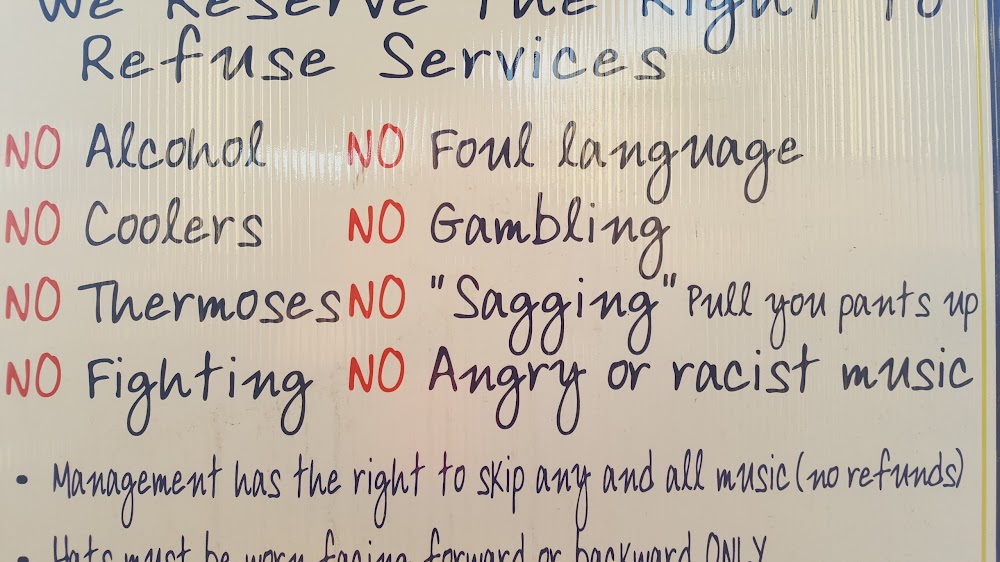 We Reserve The Right To
Refuse Services
NO Alcohol NO Foul language
NO Coolers NO Gambling
NO Thermoses NO "Sagging" Pull you pants up
NO Fighting NO Angry or racist music
• Management has the right to skip any and all music (no refunds)
• Hats must be worn facing forward or backward ONLY